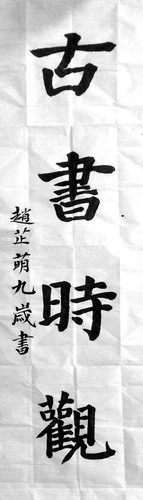 古書時觀
趙芷萌九歲書